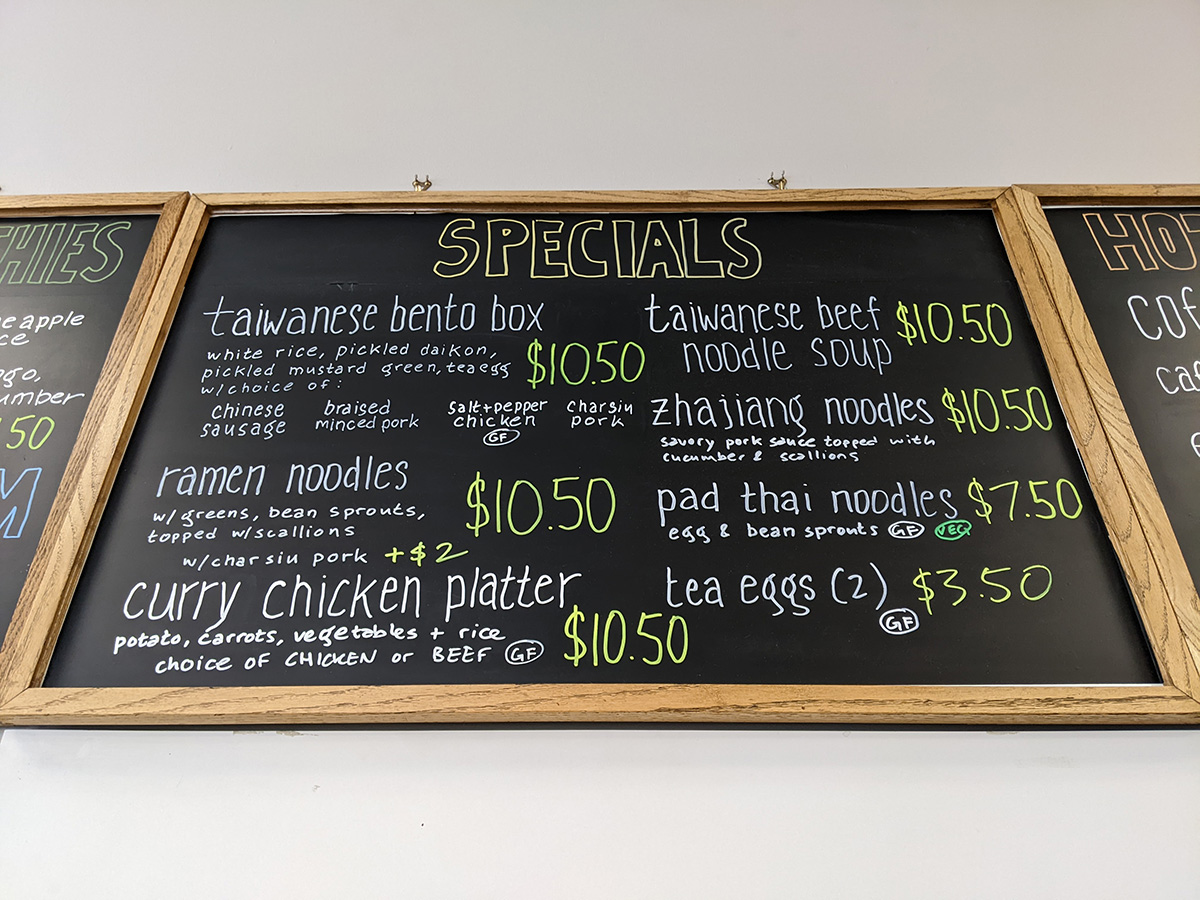 THIES
apple
ce
go,
umber
50
M
SPECIALS
taiwanese bento box
white rice, pickled daikon,
pickled mustard green, tea egg
w/choice of:
$10.50
chinese sausage
braised minced pork
salt+pepper chicken
GF
charsiu pork
ramen noodles
w/greens, bean sprouts,
topped w/scallions
$10.50
w/charsiu pork +$2
curry chicken platter
potato, carrots, vegetables + rice
choice of CHICKEN or BEEF GF
$10.50
taiwanese beef
noodle soup
$10.50
zhajiang noodles $10.50
savory pork sauce topped with
cucumber & scallions
pad thai noodles $7.50
egg & bean sprouts GF VEG
tea eggs (2) $3.50
GF
HOT
COF
ca